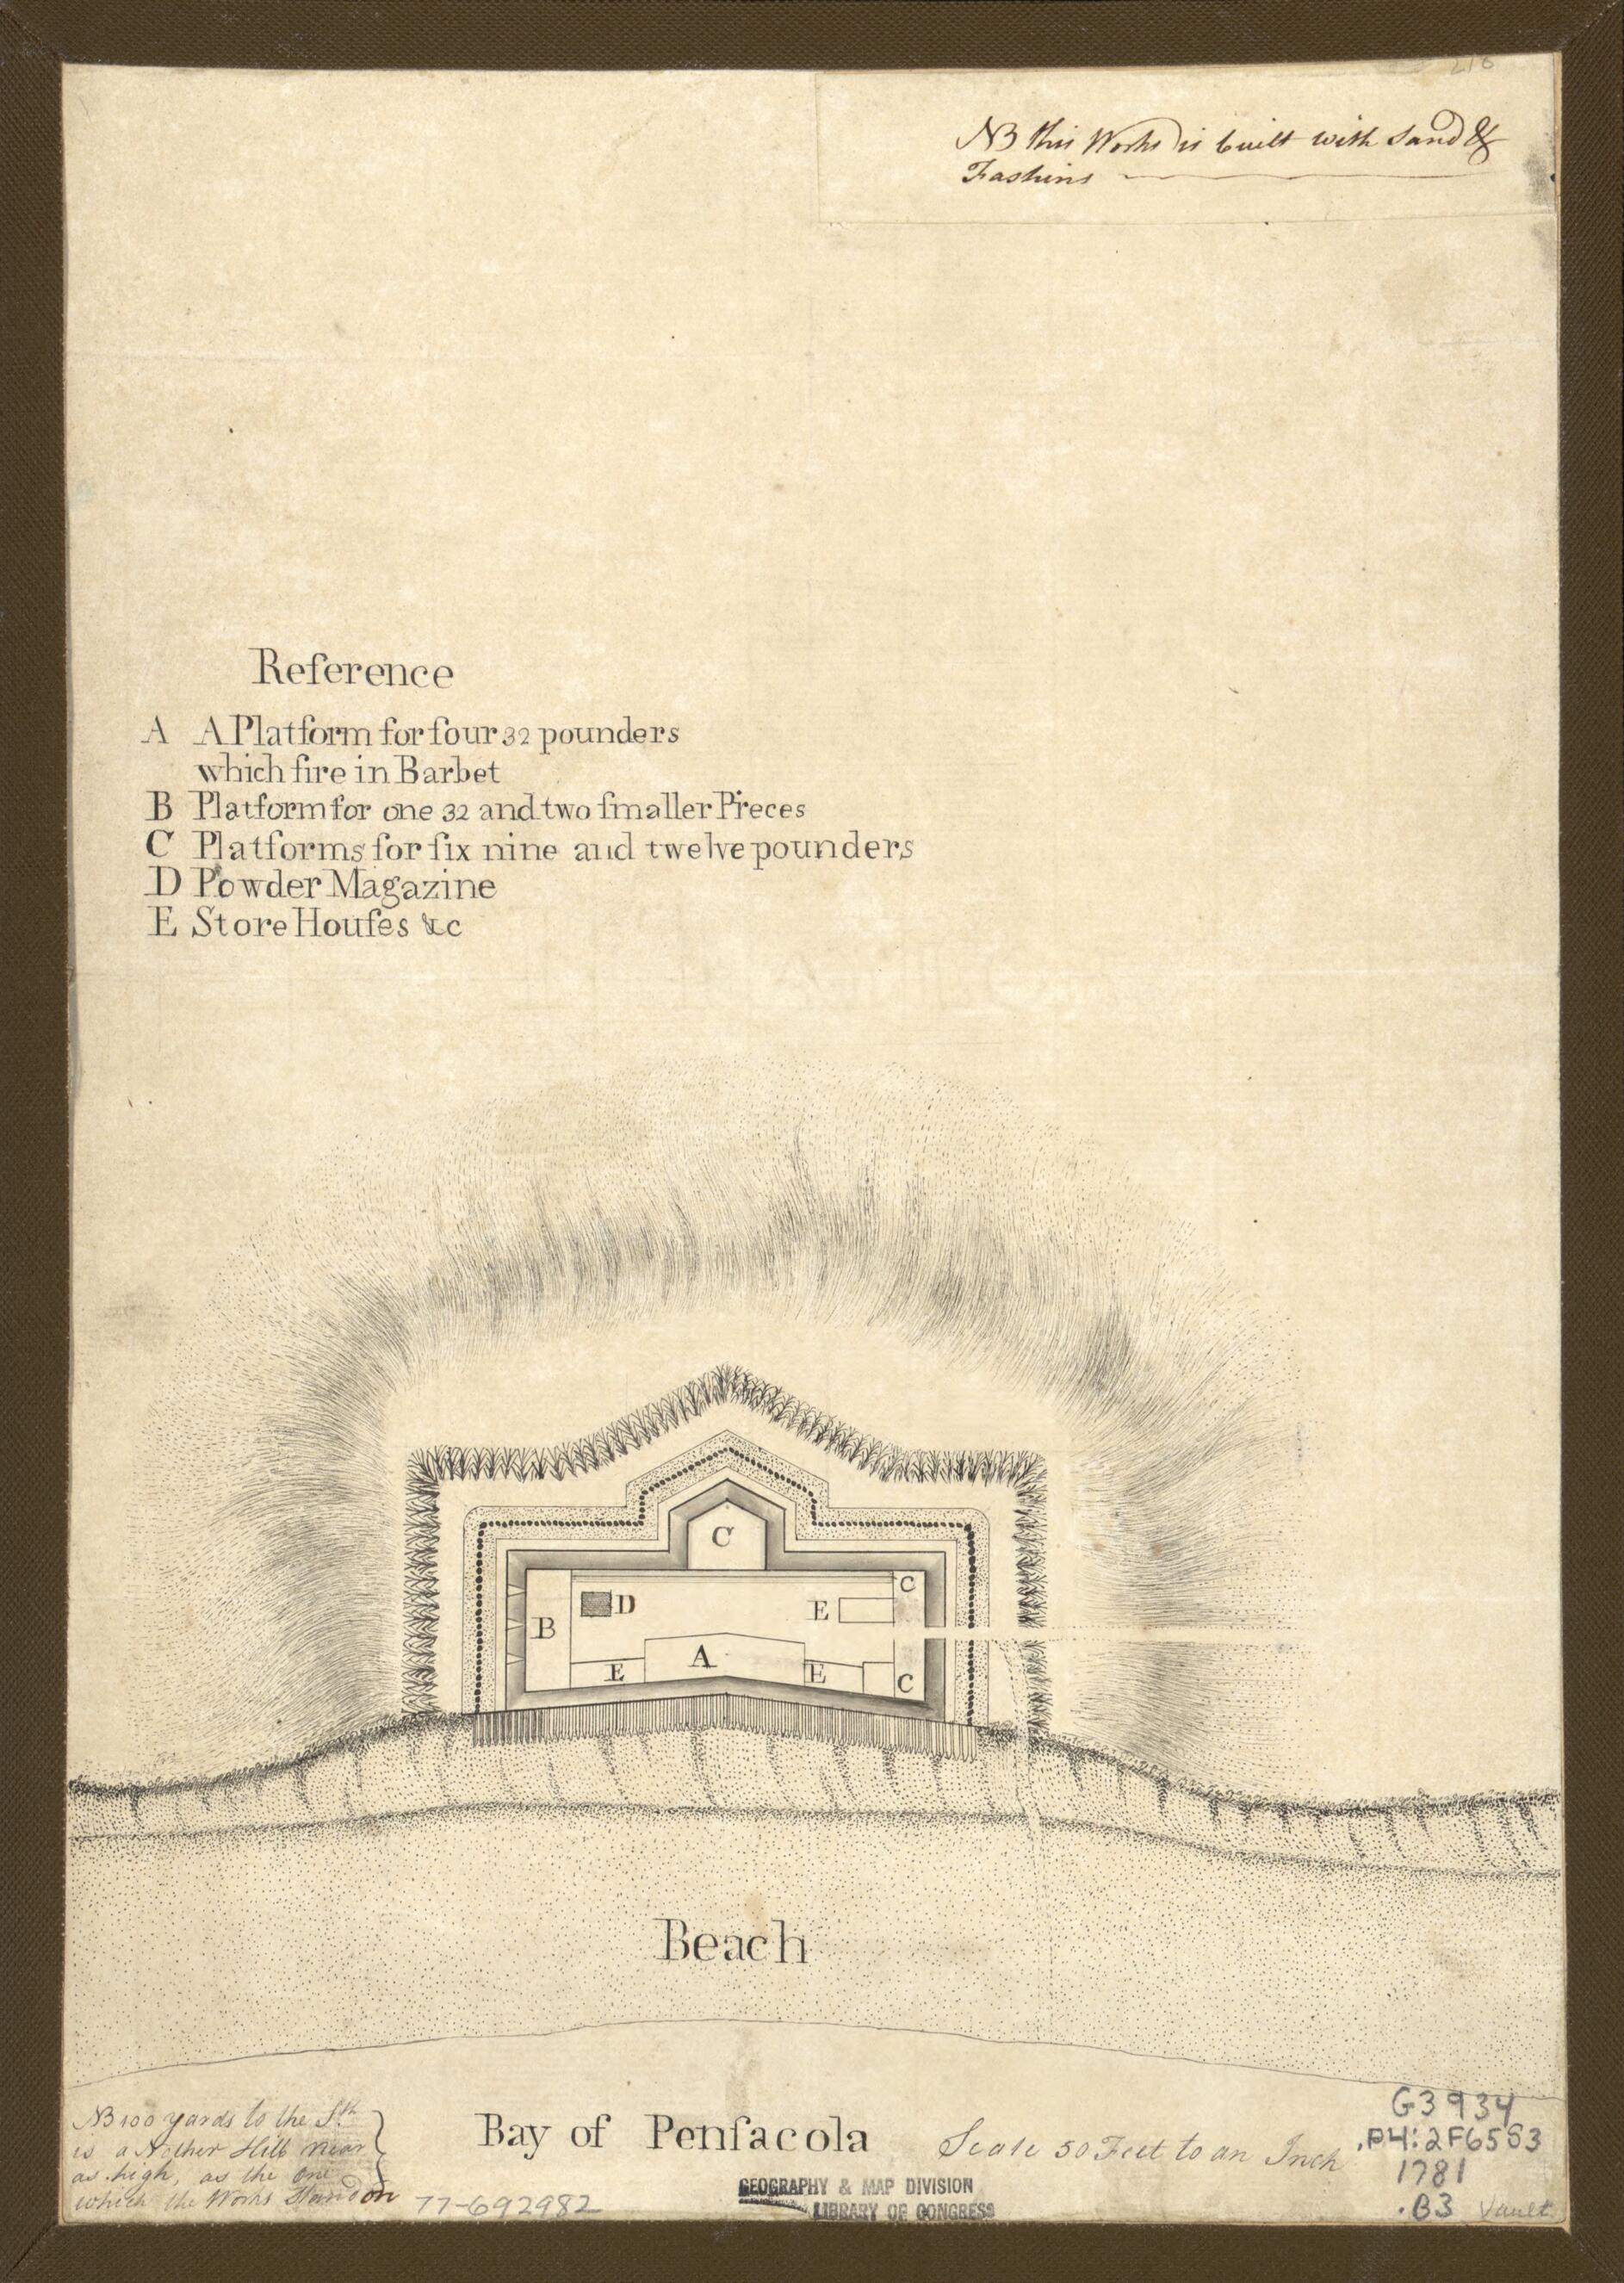 218
NB this Works is built with Sand &
Fashins
Reference
A A Platform for four 32 pounders
which fire in Barbet
B Platform for one 32 and two ſmaller Pieces
C Platforms for ſix nine and twelve pounders
D Powder Magazine
E Store Houſes &c
C
C
D
E
B
A
E
E
C
Beach
NB 100 yards to the Sth
is a Nother Hill near
as high, as the one
which the Works Stand on
Bay of Penſacola
Scale 50 Feet to an Inch
77-692982
GEOGRAPHY & MAP DIVISION
LIBRARY OF CONGRESS
G3934
.P4:2F65S3
1781
.B3 Vault